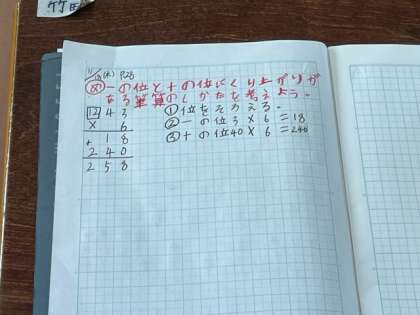 竹田
11/19(木) P.28
一の位と十の位にくり上がりが
ある筆算のしかたを考えよう。
12 4 3
× 6
+ 1 8
2 4 0
2 5 8
①位をそろえる。
②一の位3×6=18
③十の位40×6=240